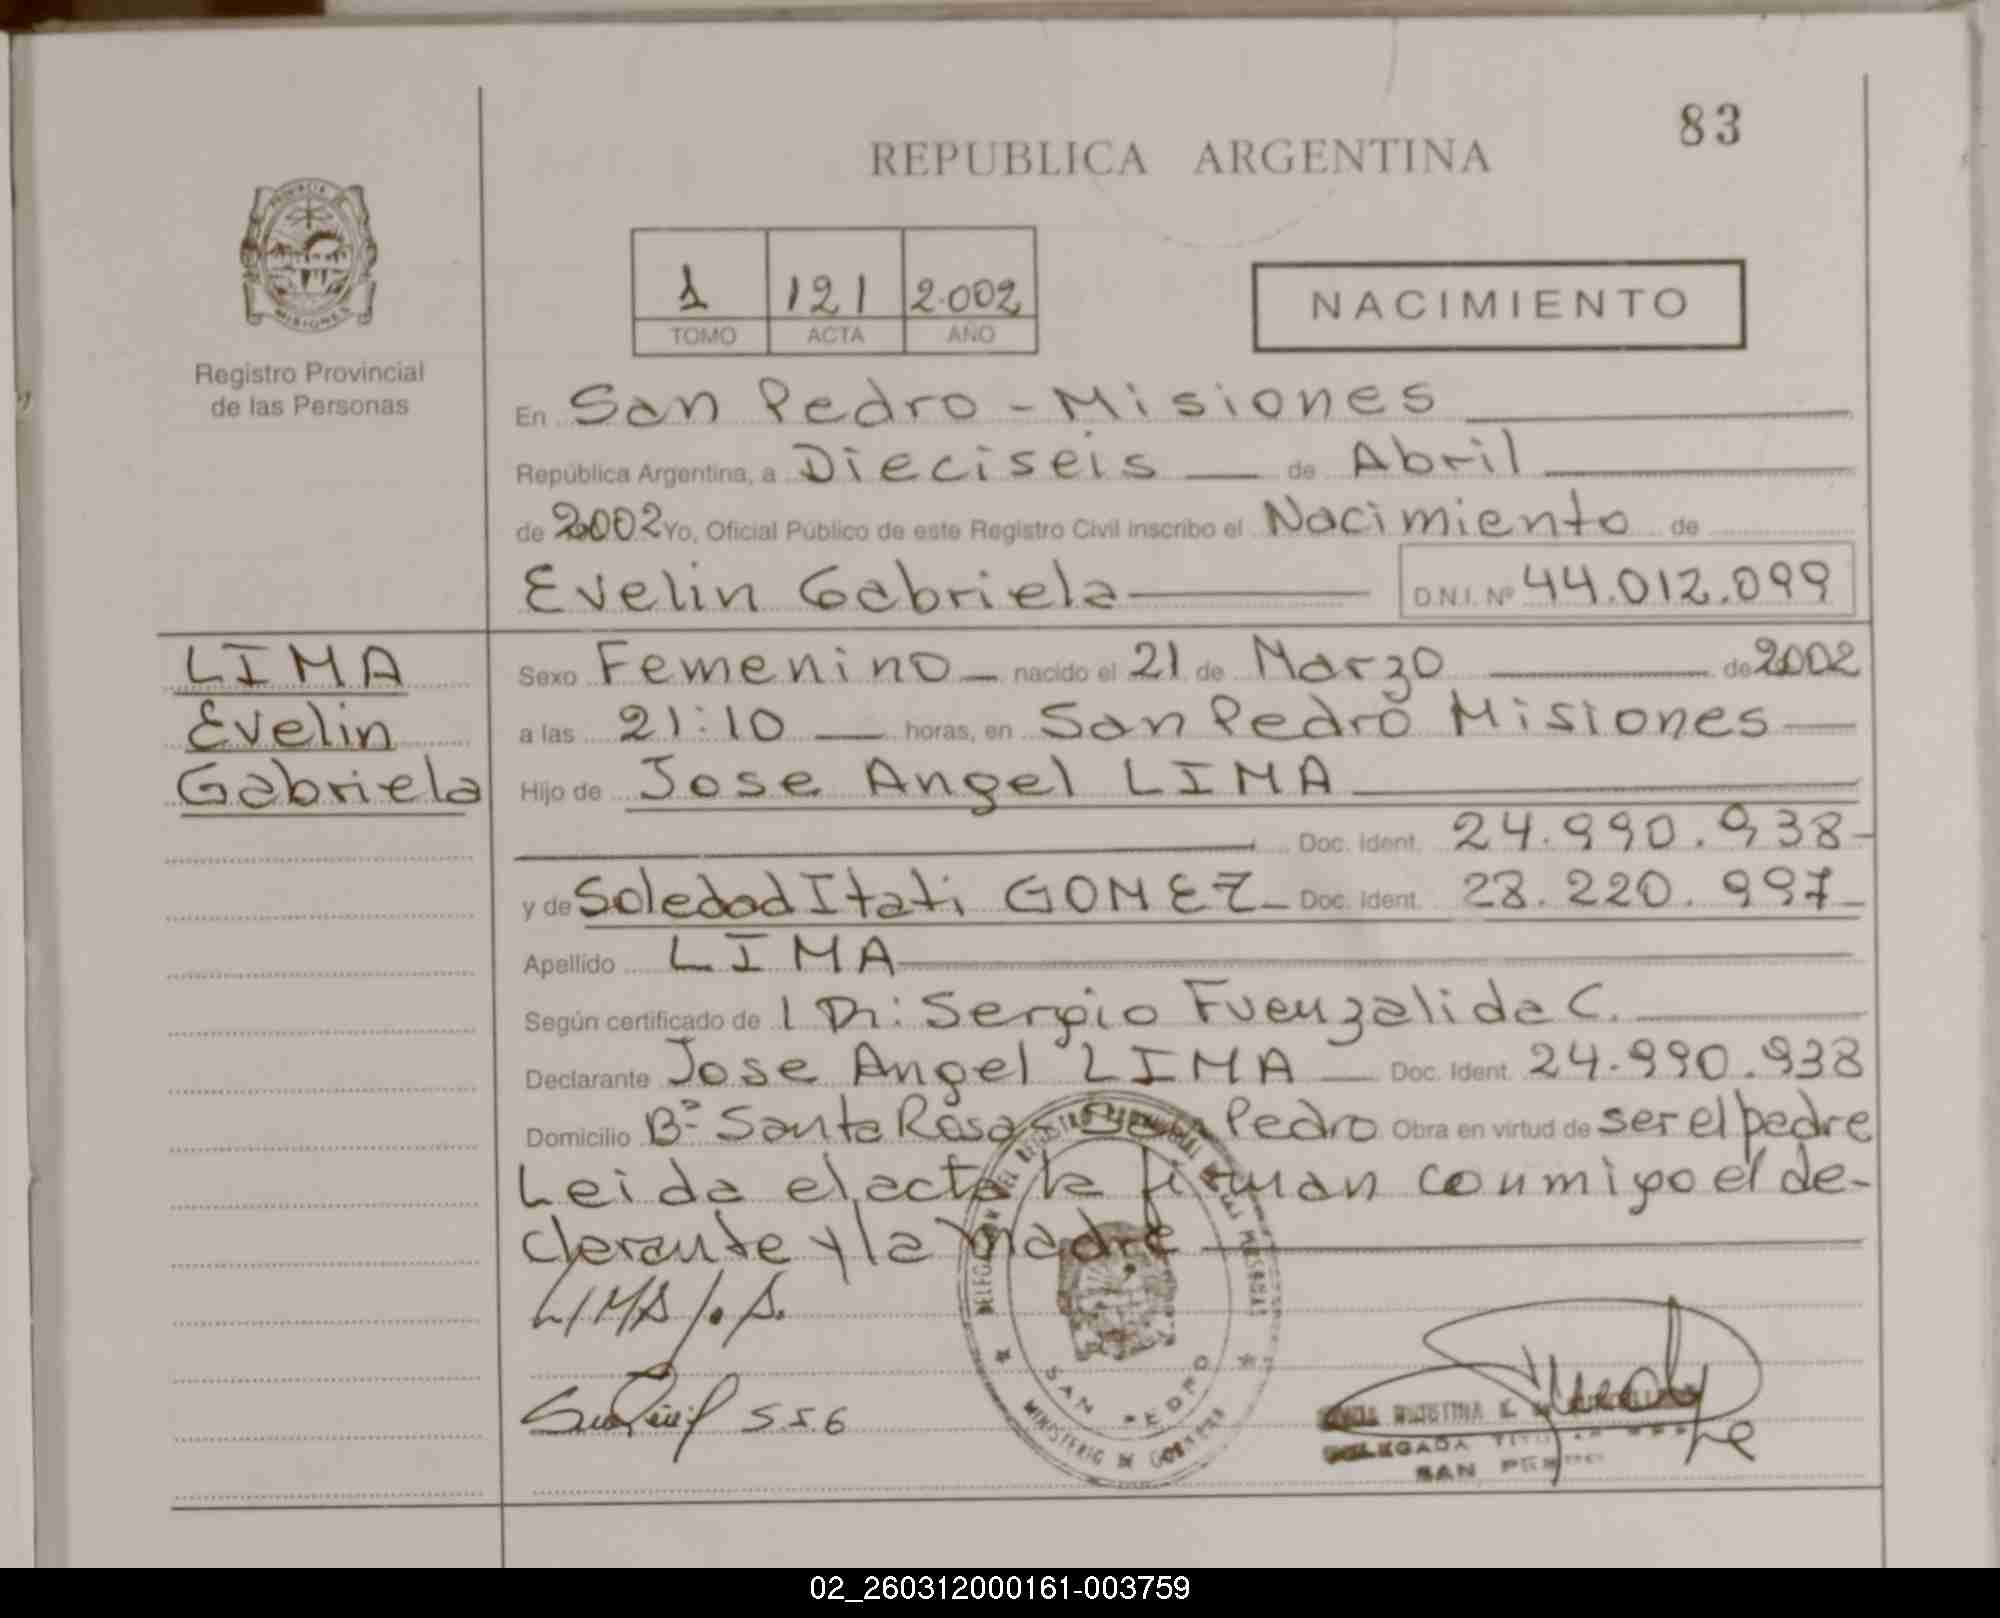 83
REPUBLICA ARGENTINA
PROVINCIA DE
MISIONES
Registro Provincial
de las Personas
1 121 2.002
TOMO ACTA AÑO
NACIMIENTO
En San Pedro - Misiones
República Argentina, a Dieciseis de Abril
de 2002 Yo, Oficial Público de este Registro Civil inscribo el Nacimiento de
Evelin Gabriela D.N.I. Nº 44.012.099
LIMA
Evelin
Gabriela
Sexo Femenino nacido el 21 de Marzo de 2002
a las 21:10 horas, en San Pedro Misiones
Hijo de Jose Angel LIMA
Doc. Ident. 24.990.938
y de Soledad Itati GOMEZ Doc. Ident. 28.220.997
Apellido LIMA
Según certificado de 1 Dr: Sergio Fuenzalida C.
Declarante Jose Angel LIMA Doc. Ident. 24.990.938
Domicilio Bº Santa Rosa San Pedro Obra en virtud de ser el padre
Leida el acta la firman conmigo el de-
clarante y la madre
LIMA J. A.
S.I.G
SAN PEDRO
MINISTERIO DE GOBIERNO
DELEGADA TITULAR
SAN PEDRO
02_260312000161-003759